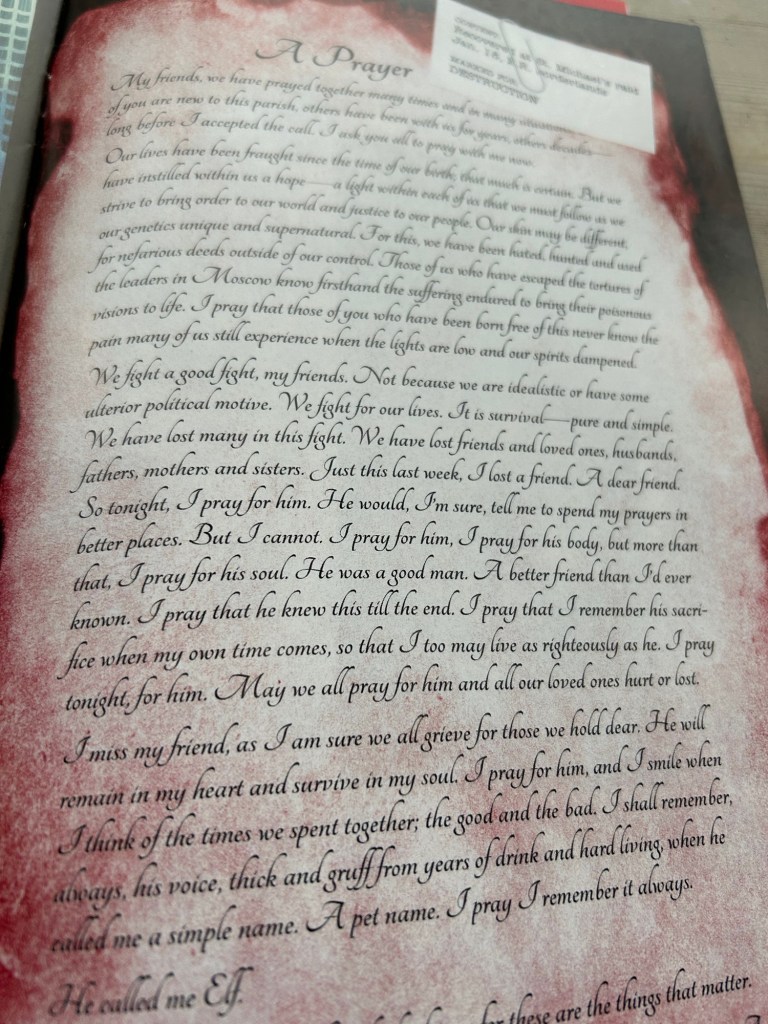 A Prayer
Recovered at St. Michael's raid
Jan. 18, P.R.
MARKED FOR
DESTRUCTION
My friends, we have prayed together many times and in many
of you are new to this parish, others have been with us for years, others decades—
long before I accepted the call. I ask you all to pray with me now.
Our lives have been fraught since the time of our birth; that much is certain. But we
have instilled within us a hope——a light within each of us that we must follow as we
strive to bring order to our world and justice to our people. Our skin may be different,
our genetics unique and supernatural. For this, we have been hated, hunted and used
for nefarious deeds outside of our control. Those of us who have escaped the tortures of
the leaders in Moscow know firsthand the suffering endured to bring their poisonous
visions to life. I pray that those of you who have been born free of this never know the
pain many of us still experience when the lights are low and our spirits dampened.
We fight a good fight, my friends. Not because we are idealistic or have some
ulterior political motive. We fight for our lives. It is survival——pure and simple.
We have lost many in this fight. We have lost friends and loved ones, husbands,
fathers, mothers and sisters. Just this last week, I lost a friend. A dear friend.
So tonight, I pray for him. He would, I'm sure, tell me to spend my prayers in
better places. But I cannot. I pray for him, I pray for his body, but more than
that, I pray for his soul. He was a good man. A better friend than I'd ever
known. I pray that he knew this till the end. I pray that I remember his sacri-
fice when my own time comes, so that I too may live as righteously as he. I pray
tonight, for him. May we all pray for him and all our loved ones hurt or lost.
I miss my friend, as I am sure we all grieve for those we hold dear. He will
remain in my heart and survive in my soul. I pray for him, and I smile when
I think of the times we spent together; the good and the bad. I shall remember,
always, his voice, thick and gruff from years of drink and hard living, when he
called me a simple name. A pet name. I pray I remember it always.
He called me Elf.
for these are the things that matter.